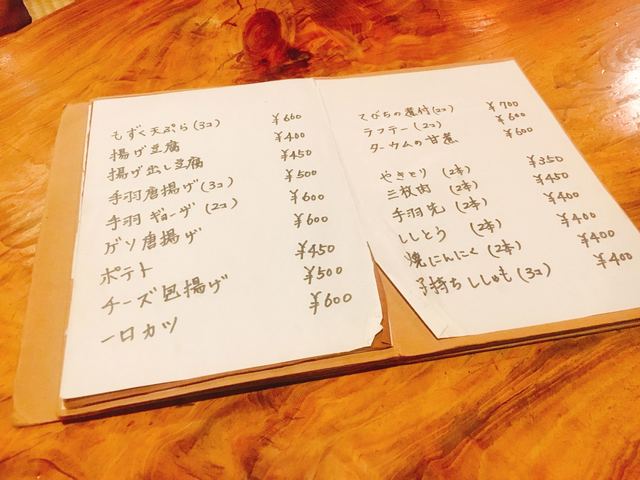 もずく天ぷら(3コ) ¥660
揚げ豆腐 ¥400
揚げ出し豆腐 ¥450
手羽唐揚げ(3コ) ¥500
手羽ギョーザ(2コ) ¥600
ゲソ唐揚げ ¥600
ポテト ¥450
チーズ包揚げ ¥500
一口カツ ¥600
てびちの煮付(2コ) ¥700
ラフテー(2コ) ¥600
ターウムの甘煮 ¥600
やきとり(2本) ¥350
三枚肉(2本) ¥450
手羽先(2本) ¥400
ししとう(2本) ¥400
焼にんにく(2本) ¥400
子持ちししゃも(3コ) ¥400